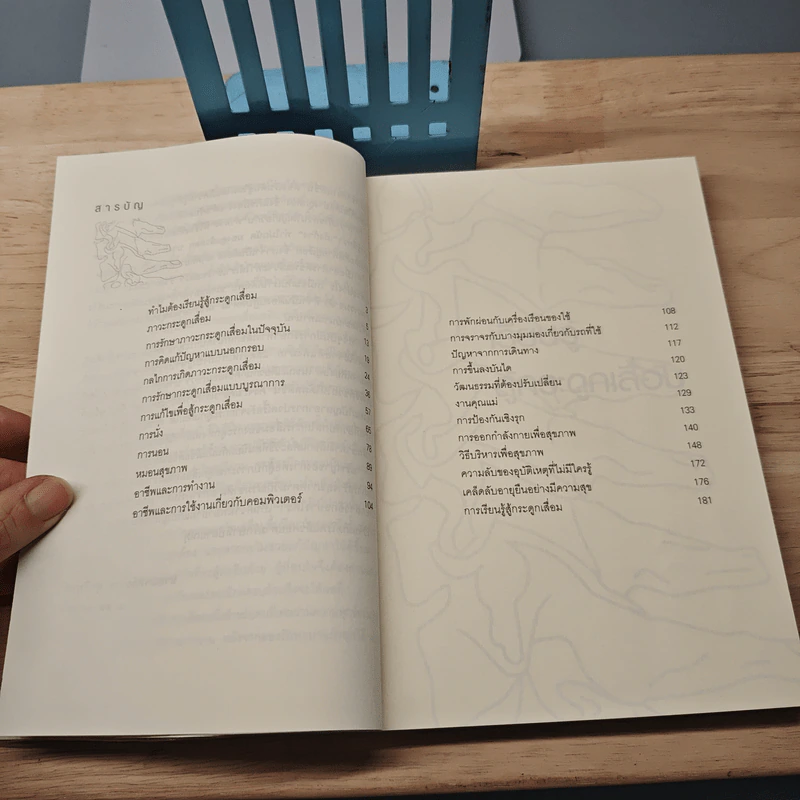 สารบัญ
ทำไมต้องเรียนรู้สู้กระดูกเสื่อม 3
ภาวะกระดูกเสื่อม 5
การรักษาภาวะกระดูกเสื่อมในปัจจุบัน 13
การคิดแก้ปัญหาแบบนอกกรอบ 19
กลไกการเกิดภาวะกระดูกเสื่อม 24
การรักษากระดูกเสื่อมแบบบูรณาการ 36
การแก้ไขเพื่อสู้กระดูกเสื่อม 57
การนั่ง 65
การนอน 78
หมอนสุขภาพ 89
อาชีพและการทำงาน 94
อาชีพและการใช้งานเกี่ยวกับคอมพิวเตอร์ 104
การพักผ่อนกับเครื่องเรือนของใช้ 108
การจราจรกับบางมุมมองเกี่ยวกับรถที่ใช้ 112
ปัญหาจากการเดินทาง 117
การขึ้นลงบันได 120
วัฒนธรรมที่ต้องปรับเปลี่ยน 123
งานคุณแม่ 129
การป้องกันเชิงรุก 133
การออกกำลังกายเพื่อสุขภาพ 140
วิธีบริหารเพื่อสุขภาพ 148
ความลับของอุบัติเหตุที่ไม่มีใครรู้ 172
เคล็ดลับอายุยืนอย่างมีความสุข 176
การเรียนรู้สู้กระดูกเสื่อม 181